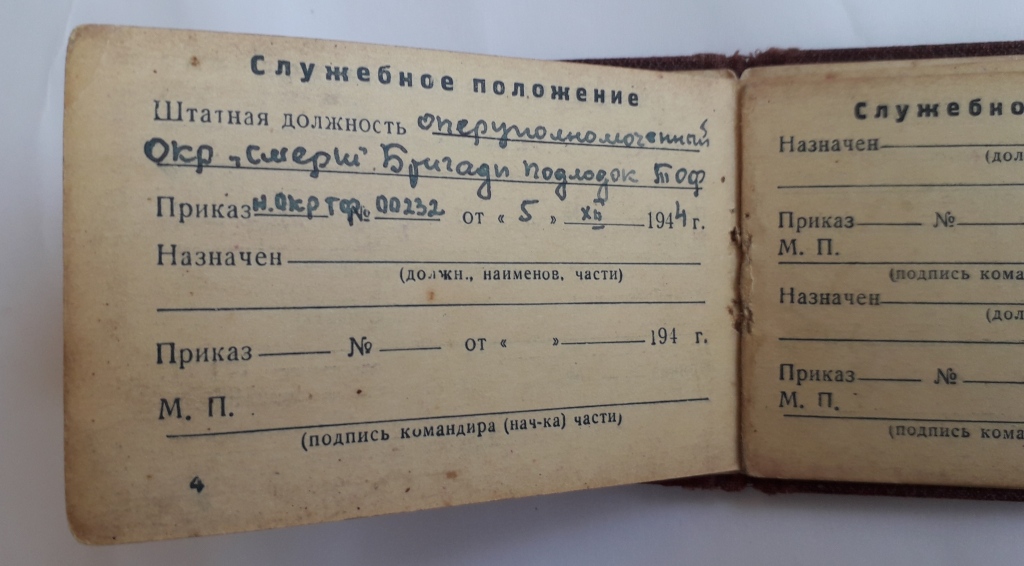 Служебное положение
Штатная должность оперуполномоченный
Окр „Смерш" Бригади подлодок Тоф.
Приказ н.ОКР ТФ № 00232 от « 5 » XII 1944 г.
Назначен
(должн., наименов. части)
Приказ № от « » 194 г.
М. П.
(подпись командира (нач-ка) части)
4
Служебно
Назначен
(дол
Приказ №
М. П.
(подпись кома
Назначен
(дол
Приказ №
М. П.
(подпись кома